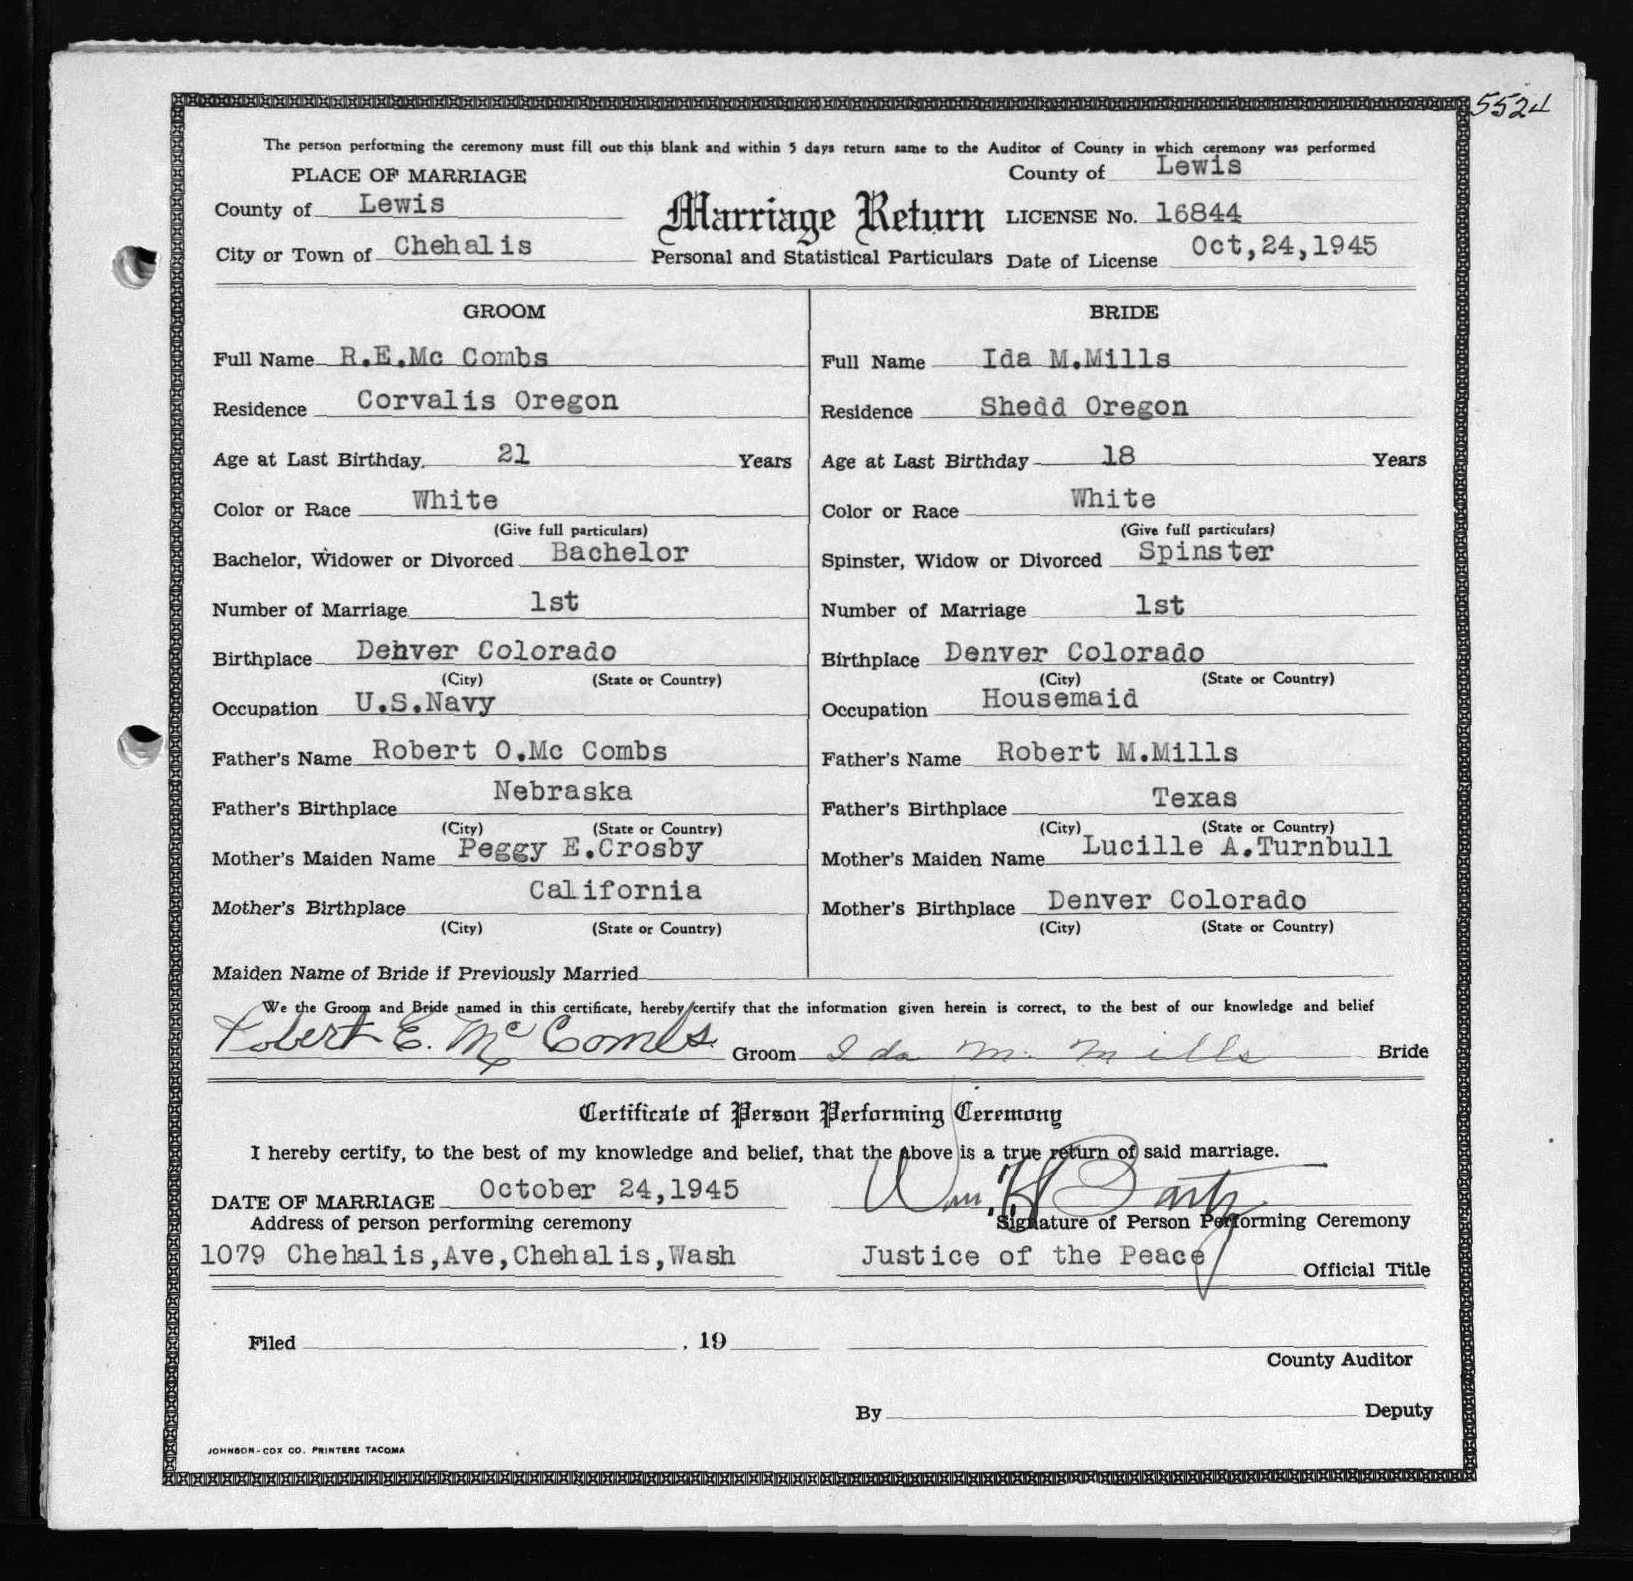 5524
The person performing the ceremony must fill out this blank and within 5 days return same to the Auditor of County in which ceremony was performed
PLACE OF MARRIAGE
County of Lewis
City or Town of Chehalis
Marriage Return
Personal and Statistical Particulars
County of Lewis
LICENSE No. 16844
Date of License Oct,24,1945
GROOM
Full Name R.E.Mc Combs
Residence Corvalis Oregon
Age at Last Birthday 21 Years
Color or Race White
(Give full particulars)
Bachelor, Widower or Divorced Bachelor
Number of Marriage 1st
Birthplace Denver Colorado
(City) (State or Country)
Occupation U.S.Navy
Father's Name Robert O.Mc Combs
Father's Birthplace Nebraska
(City) (State or Country)
Mother's Maiden Name Peggy E.Crosby
Mother's Birthplace California
(City) (State or Country)
BRIDE
Full Name Ida M.Mills
Residence Shedd Oregon
Age at Last Birthday 18 Years
Color or Race White
(Give full particulars)
Spinster, Widow or Divorced Spinster
Number of Marriage 1st
Birthplace Denver Colorado
(City) (State or Country)
Occupation Housemaid
Father's Name Robert M.Mills
Father's Birthplace Texas
(City) (State or Country)
Mother's Maiden Name Lucille A.Turnbull
Mother's Birthplace Denver Colorado
(City) (State or Country)
Maiden Name of Bride if Previously Married
We the Groom and Bride named in this certificate, hereby certify that the information given herein is correct, to the best of our knowledge and belief
Robert E. McCombs Groom Ida M. Mills Bride
Certificate of Person Performing Ceremony
I hereby certify, to the best of my knowledge and belief, that the above is a true return of said marriage.
DATE OF MARRIAGE October 24,1945 Wm. H
Address of person performing ceremony Signature of Person Performing Ceremony
1079 Chehalis,Ave,Chehalis,Wash Justice of the Peace Official Title
Filed , 19
County Auditor
By Deputy
JOHNSON-COX CO. PRINTERS TACOMA